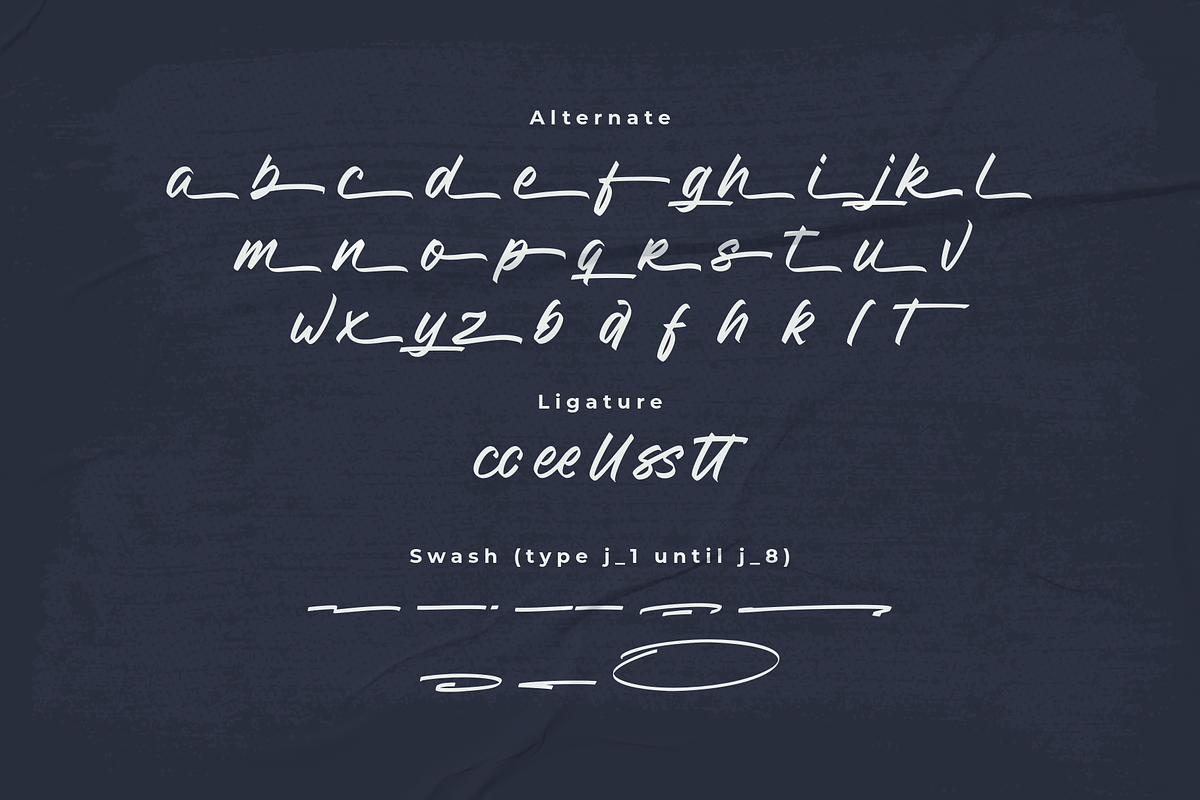 Alternate
a b c d e f g h i j k l
m n o p q r s t u v
w x y z b d f h k l t
Ligature
cc ee ll ss tt
Swash (type j_1 until j_8)